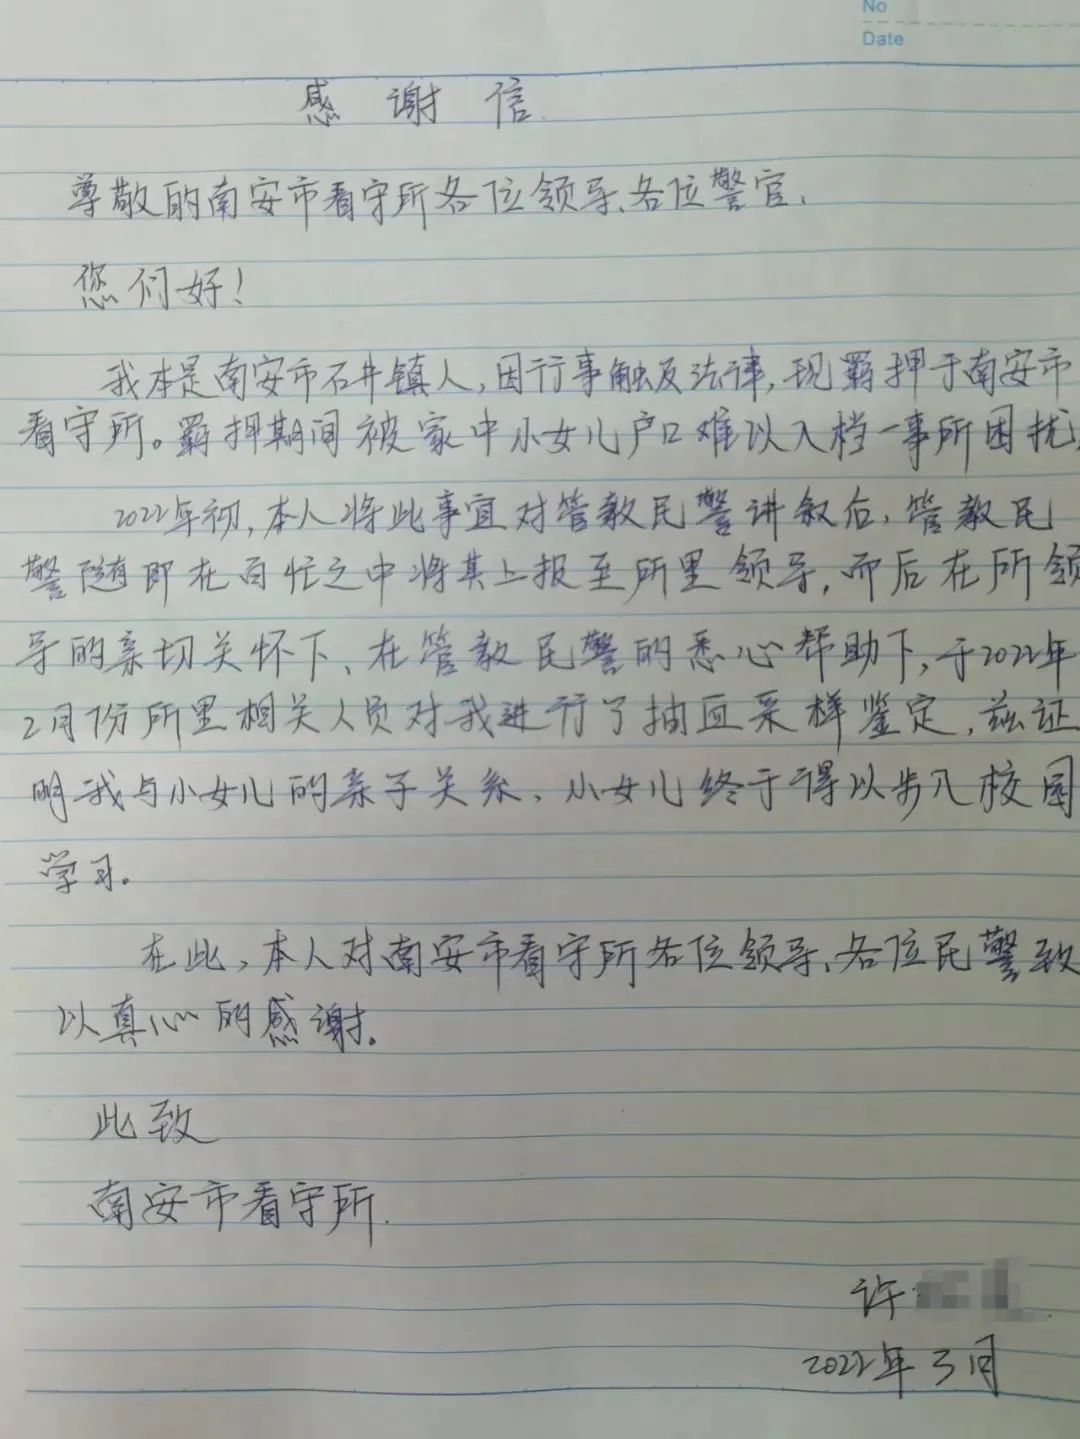 No
Date
感谢信
尊敬的南安市看守所各位领导、各位警官，
您们好！
我本是南安市石井镇人，因行事触及法律，现羁押于南安市
看守所。羁押期间被家中小女儿户口难以入档一事所困扰，
2022年初，本人将此事宜对管教民警讲叙后，管教民
警随即在百忙之中将其上报至所里领导，而后在所领
导的亲切关怀下、在管教民警的悉心帮助下，于2022年
2月份所里相关人员对我进行了抽血采样鉴定，兹证
明我与小女儿的亲子关系，小女儿终于得以步入校园
学习。
在此，本人对南安市看守所各位领导、各位民警致
以真心的感谢。
此致
南安市看守所.
许
2022年3月